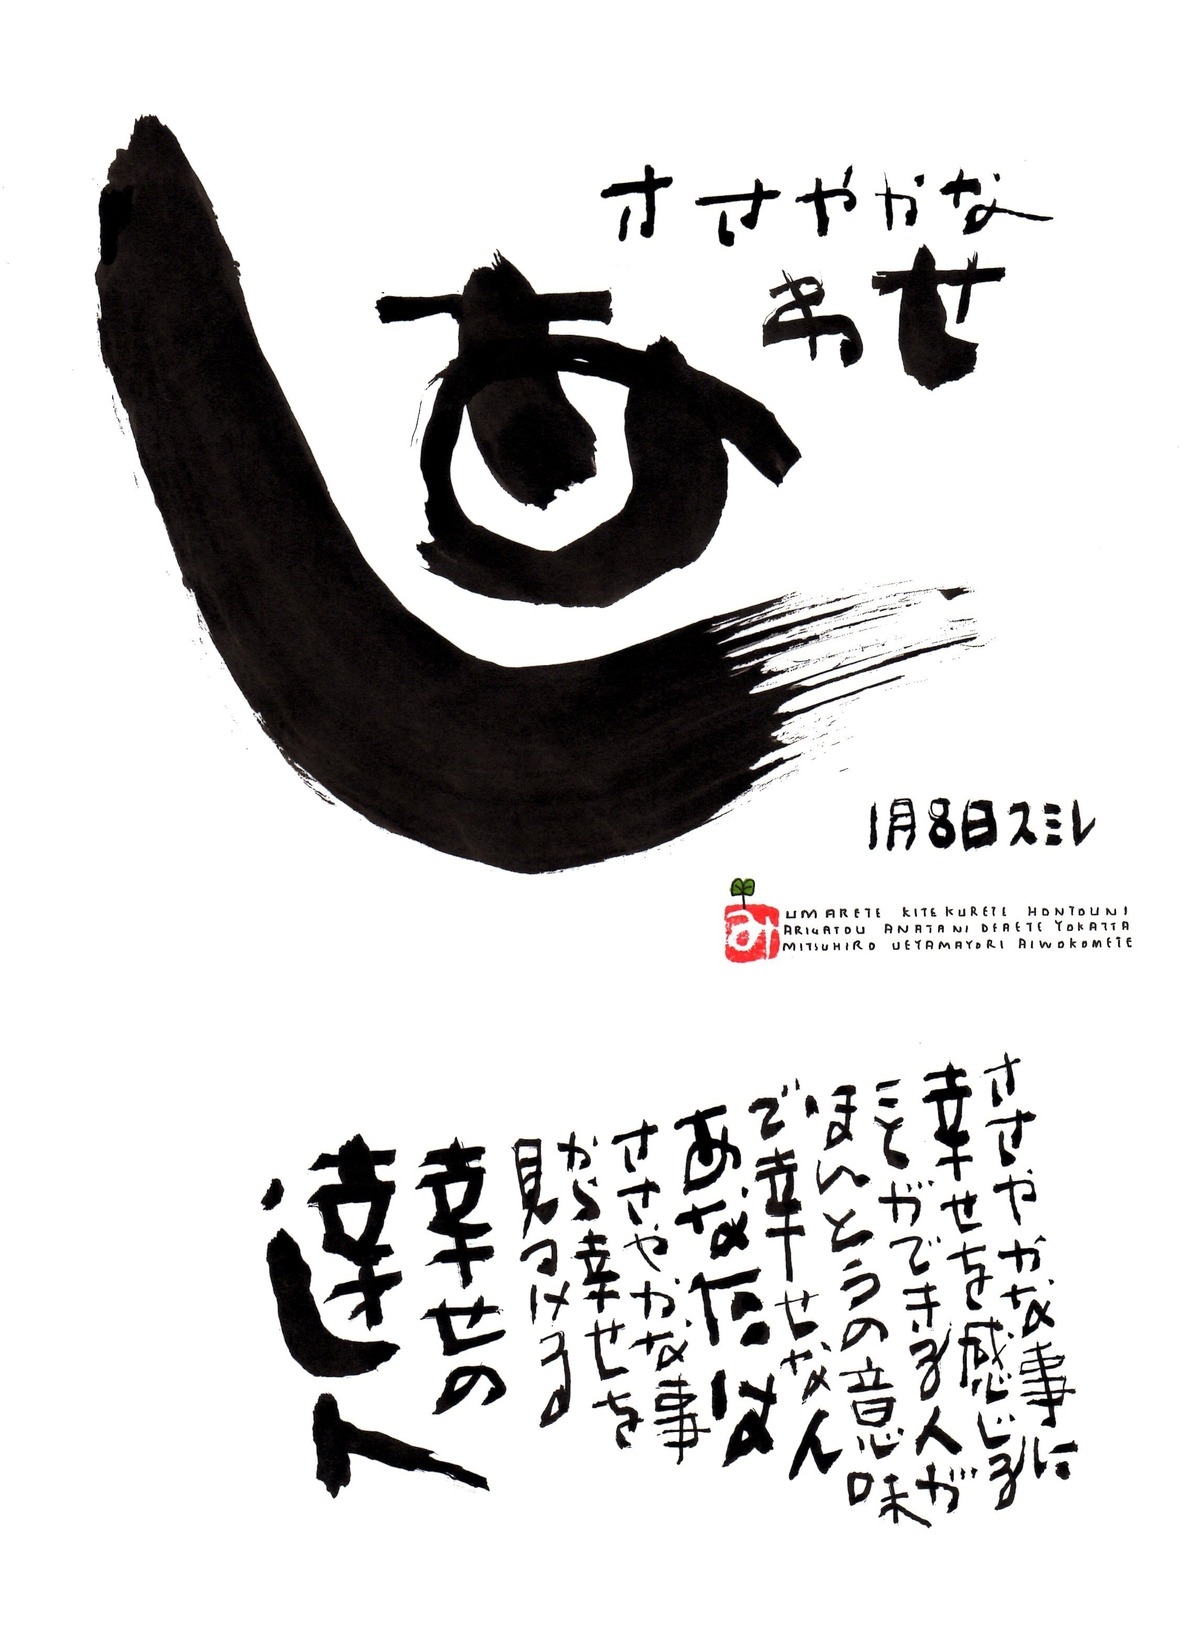 ささやかな
しあわせ
1月8日スミレ
み
UMARETE KITEKURETE HONTOUNI
ARIGATOU ANATANI DEAETE YOKATTA
MITSUHIRO UEYAMAYORI AIWOKOMETE
ささやかな事に
幸せを感じる
ことができる人が
ほんとうの意味
で幸せなん
あなたは
ささやかな事
から幸せを
見つける
幸せの
達人